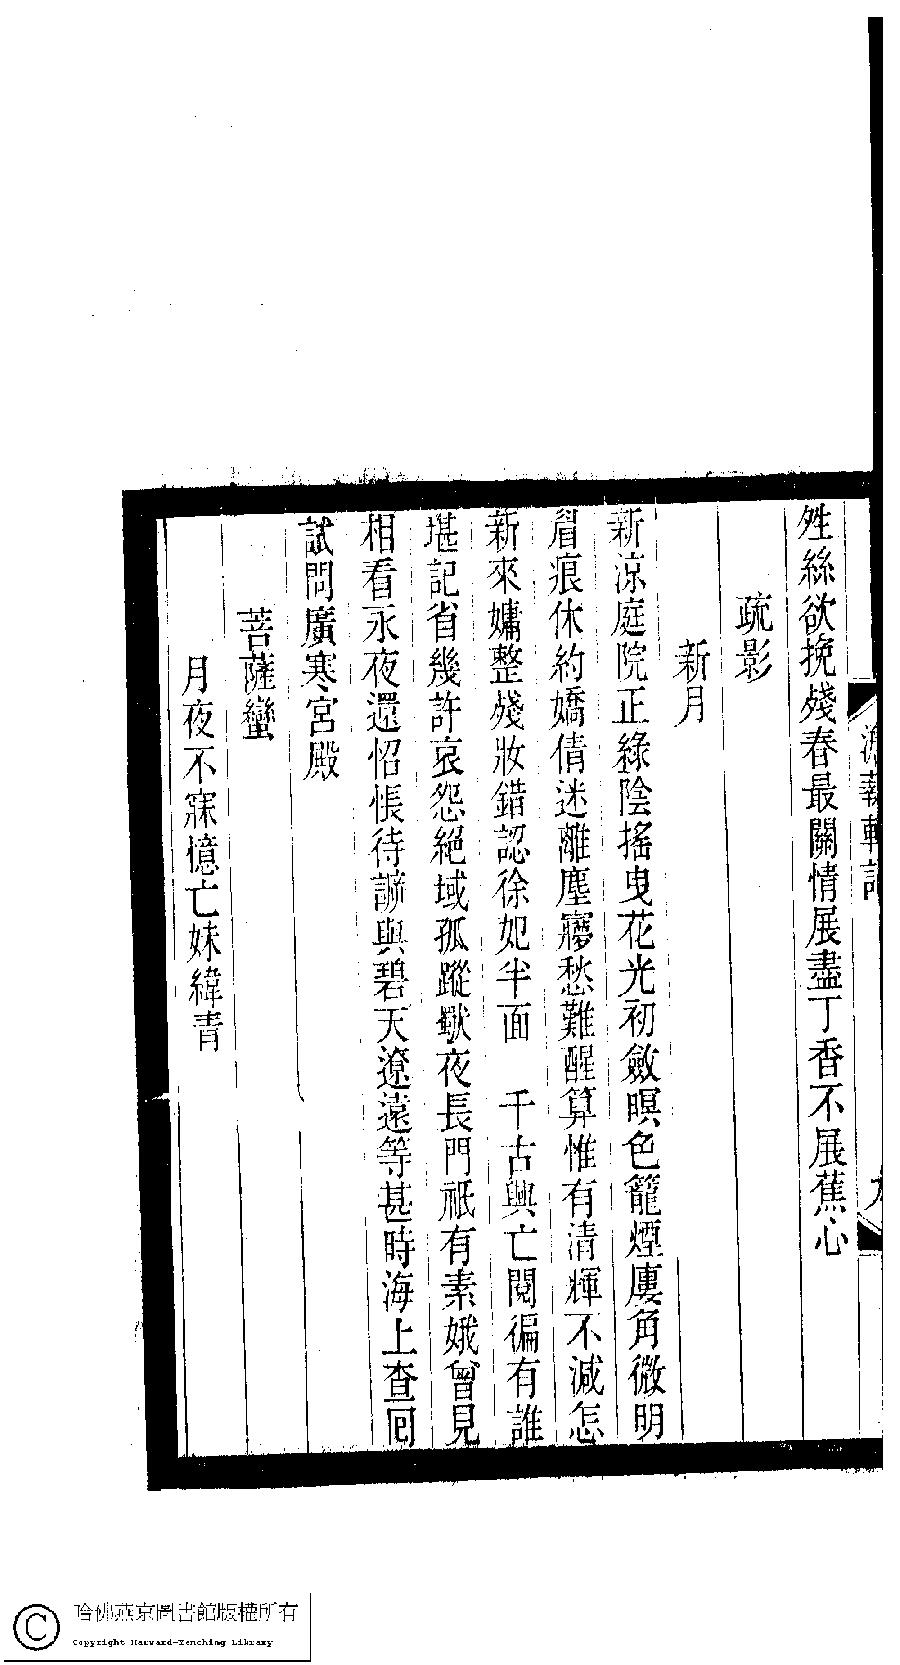 夝絲欲挽殘春最關情展盡丁香不展蕉心
疏影
新月
新涼庭院正綠陰搖曳花光初斂暝色籠煙廔角微明
眉痕休約嬌倩迷離塵寱愁難醒算惟有清輝不減怎
新來嫞整殘妝錯認徐妃半面　千古興亡閱徧有誰
堪記省幾許哀怨絕域孤蹤猒夜長門祇有素娥曾見
相看永夜還怊悵待訴與碧天遼遠等甚時海上查回
試問廣寒宮殿
菩薩蠻
月夜不寐憶亡妹緯青
哈佛燕京圖書館版權所有
Copyright Harvard-Yenching Library